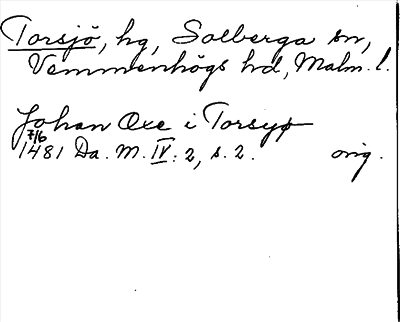 Torsjö, hg, Solberga sn,
Vemmenhögs hd, Malm. l.
Johan Oxe i Torsyø
7/6
1481 Da. M. IV: 2, s. 2. orig.